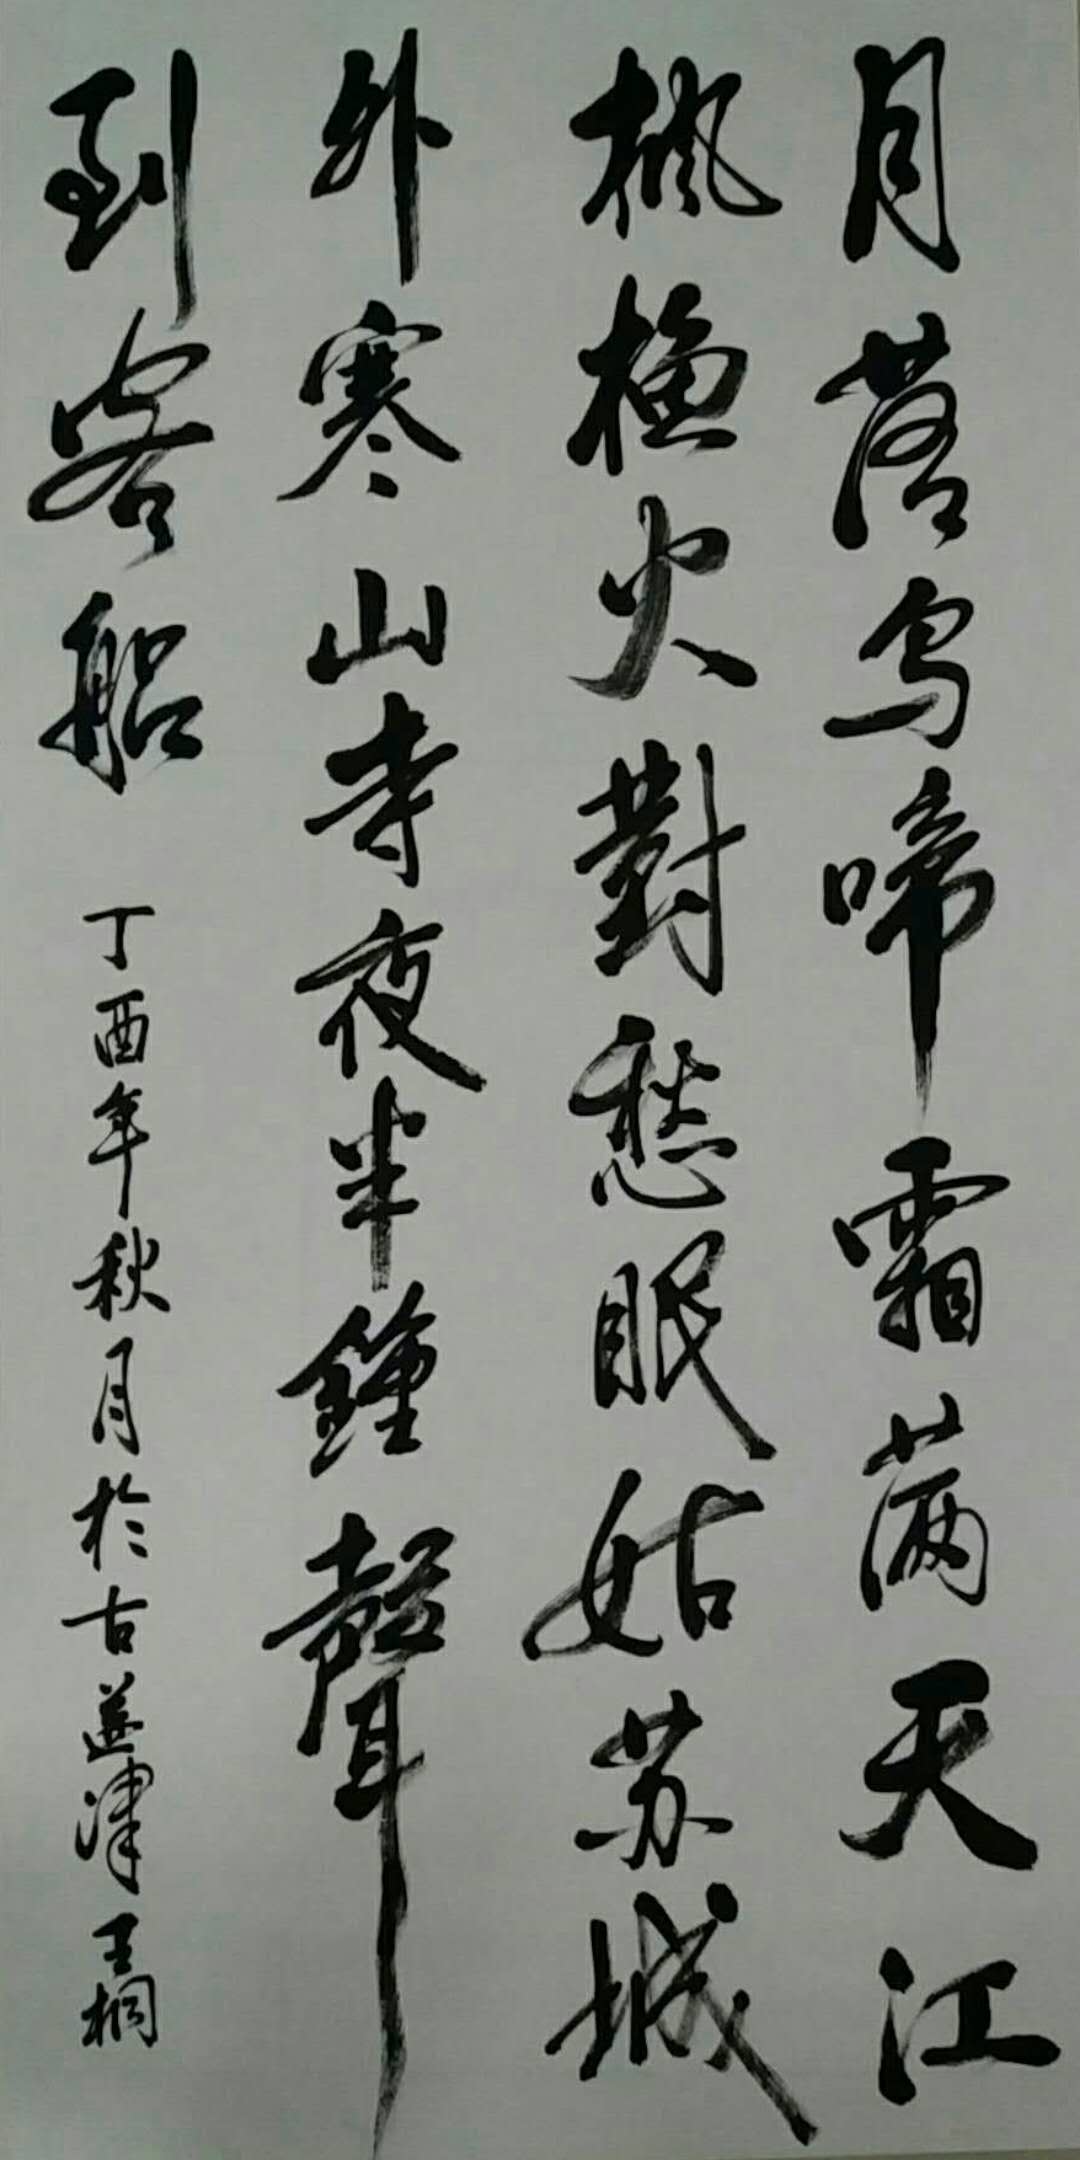 月落乌啼霜满天江
枫渔火對愁眠姑苏城
外寒山寺夜半鐘聲
到客船 丁酉年秋月於古津王桐